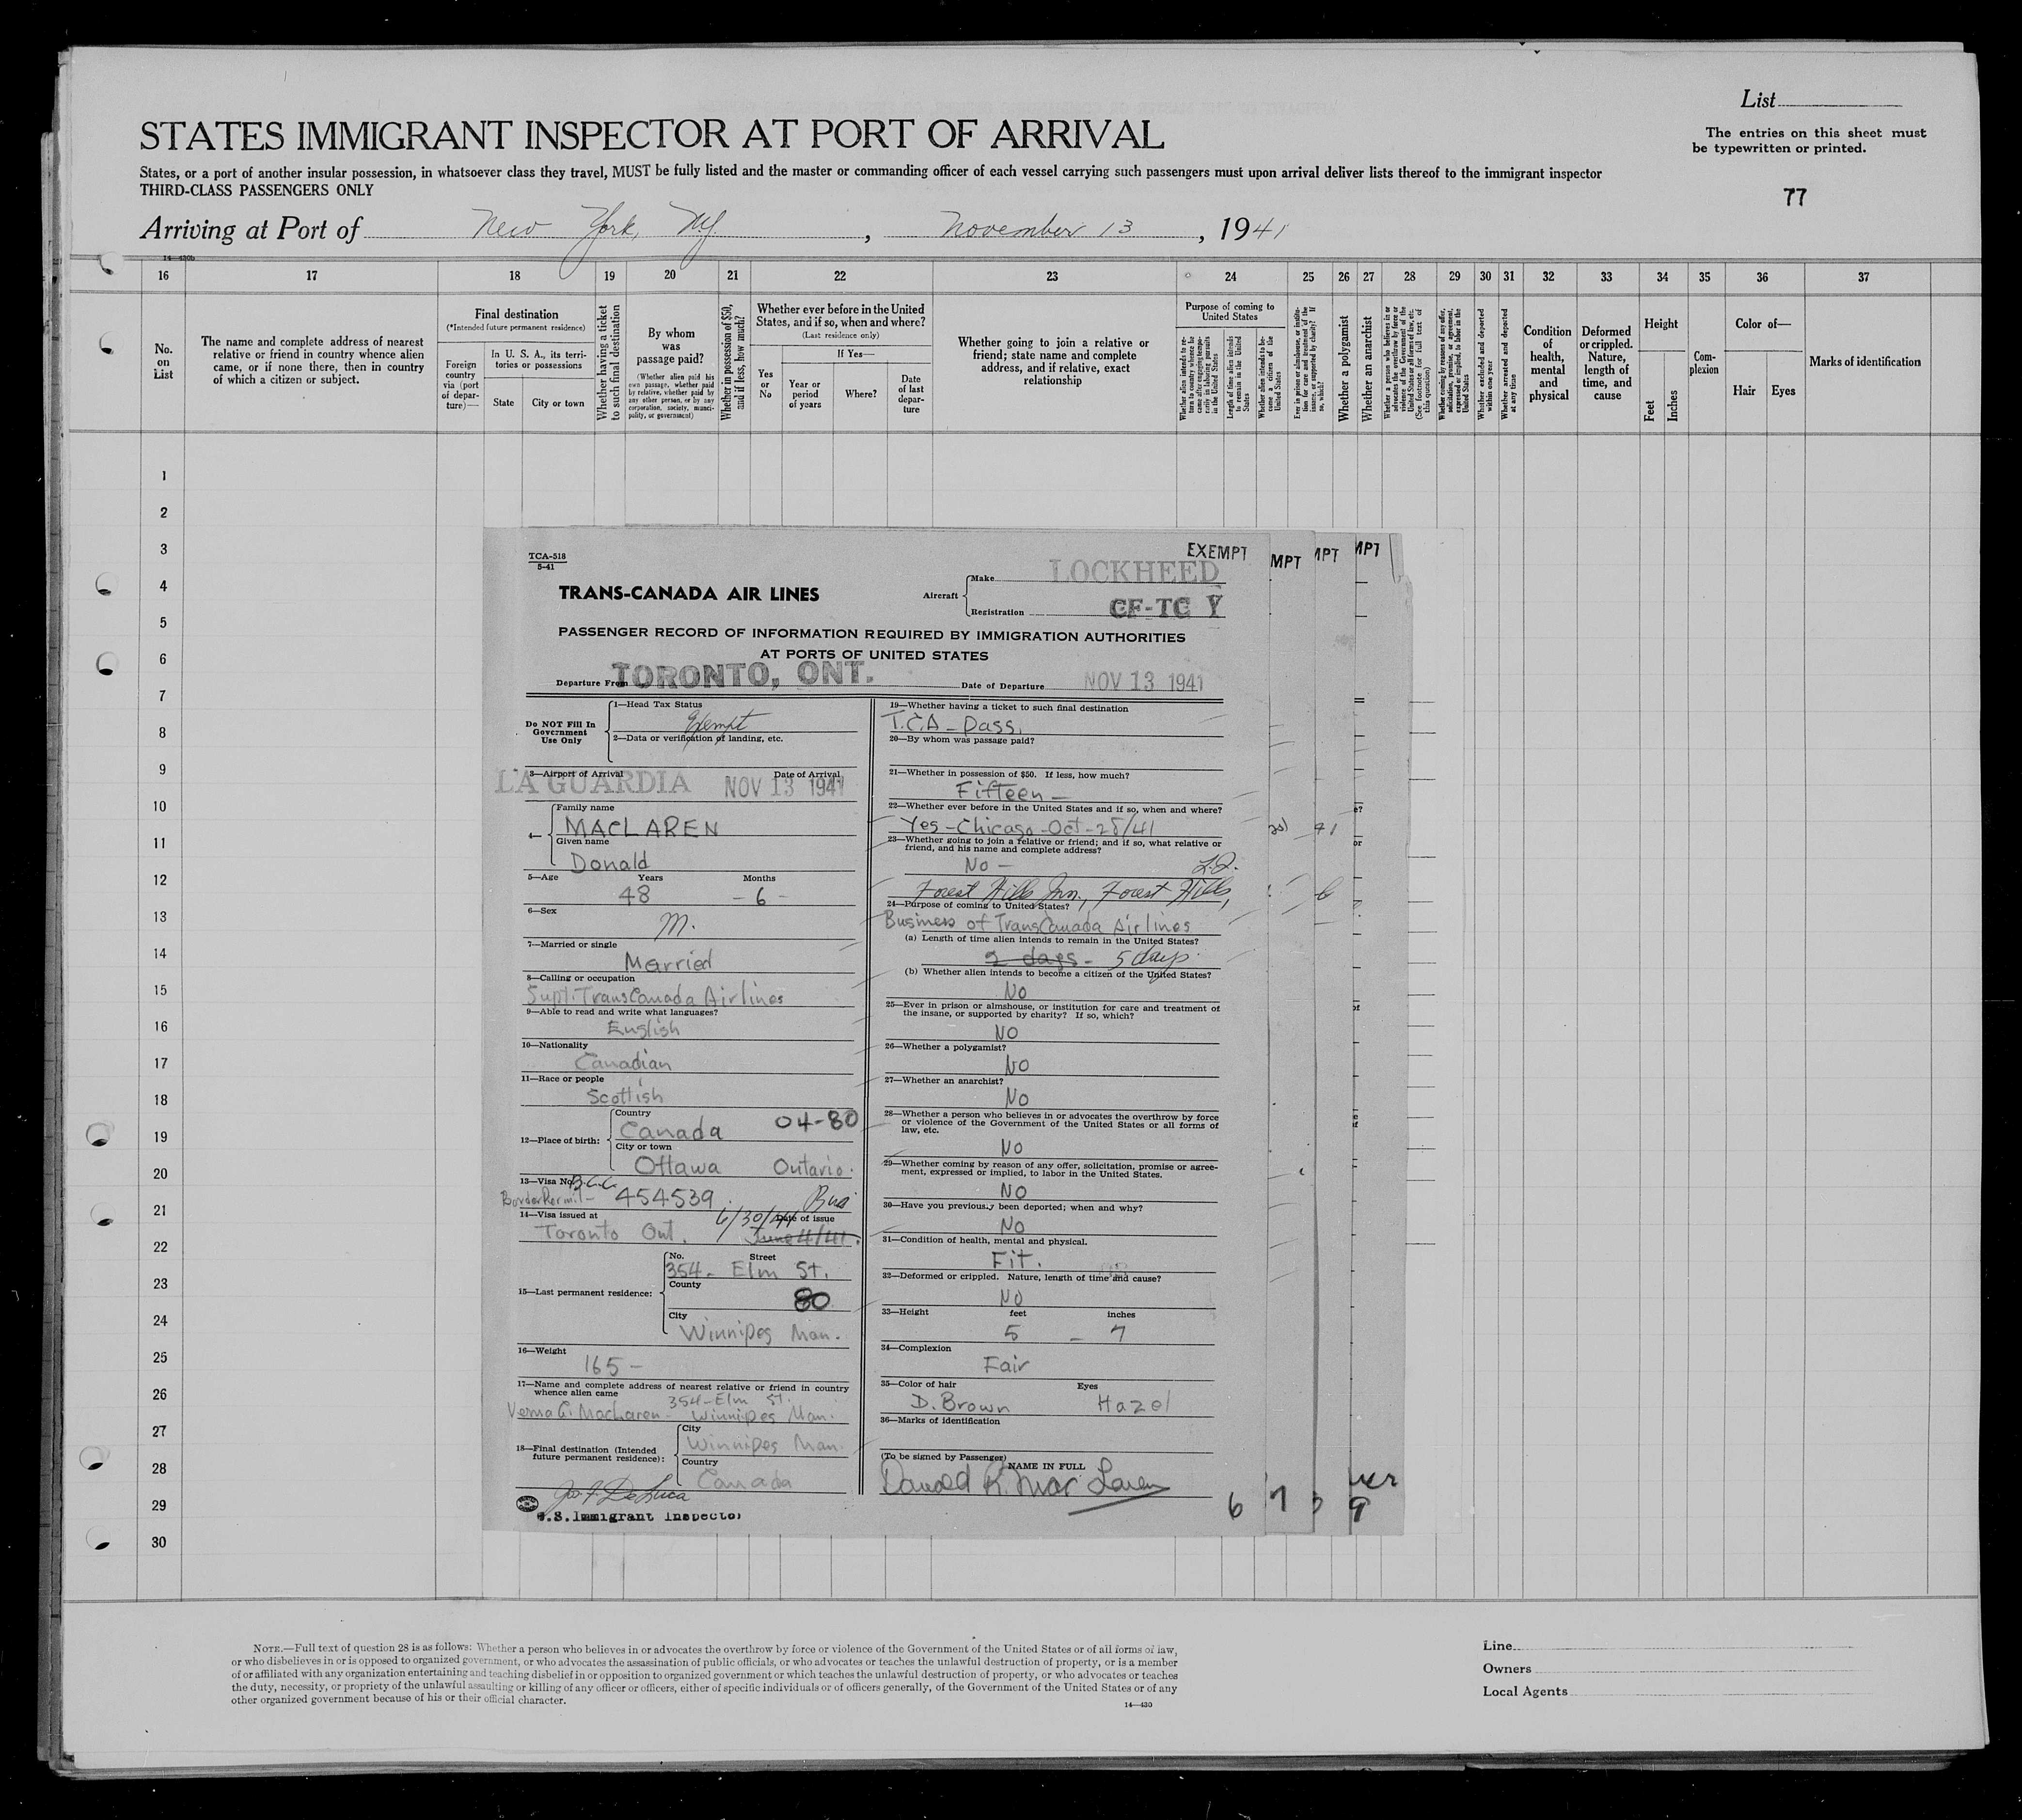 List
STATES IMMIGRANT INSPECTOR AT PORT OF ARRIVAL
The entries on this sheet must
be typewritten or printed.
States, or a port of another insular possession, in whatsoever class they travel, MUST be fully listed and the master or commanding officer of each vessel carrying such passengers must upon arrival deliver lists thereof to the immigrant inspector
THIRD-CLASS PASSENGERS ONLY
77
Arriving at Port of New York, N.Y., November 13, 1941
14—430b
16 17 18 19 20 21 22 23 24 25 26 27 28 29 30 31 32 33 34 35 36 37
No.
on
List
The name and complete address of nearest
relative or friend in country whence alien
came, or if none there, then in country
of which a citizen or subject.
Final destination
(*Intended future permanent residence)
Foreign
country
via (port
of depar-
ture)—
In U. S. A., its terri-
tories or possessions
State City or town
Whether having a ticket
to such final destination
By whom
was
passage paid?
(Whether alien paid his
own passage, whether paid
by relative, whether paid by
any other person, or by any
corporation, society, munici-
pality, or government)
Whether in possession of $50,
and if less, how much?
Whether ever before in the United
States, and if so, when and where?
(Last residence only)
Yes
or
No
If Yes—
Year or
period
of years
Where?
Date
of last
depar-
ture
Whether going to join a relative or
friend; state name and complete
address, and if relative, exact
relationship
Purpose of coming to
United States
Whether alien intends to re-
turn to country whence he
came after engaging tempo-
rarily in laboring pursuits
in the United States
Length of time alien intends
to remain in the United
States
Whether alien intends to be-
come a citizen of the
United States
Ever in prison or almshouse, or institu-
tion for care and treatment of the
insane, or supported by charity? If
so, which?
Whether a polygamist
Whether an anarchist
Whether a person who believes in or
advocates the overthrow by force or
violence of the Government of the
United States or all forms of law, etc.
(See footnote for full text of
this question)
Whether coming by reasons of any offer,
solicitation, promise, or agreement,
expressed or implied, to labor in the
United States
Whether excluded and deported
within one year
Whether arrested and deported
at any time
Condition
of
health,
mental
and
physical
Deformed
or crippled.
Nature,
length of
time, and
cause
Height
Feet
Inches
Com-
plexion
Color of—
Hair Eyes
Marks of identification
1
2
3
4
5
6
7
8
9
10
11
12
13
14
15
16
17
18
19
20
21
22
23
24
25
26
27
28
29
30
TCA-518
5-41
EXEMPT MPT MPT MPT
TRANS-CANADA AIR LINES
Aircraft
Make LOCKHEED
Registration CF-TC Y
PASSENGER RECORD OF INFORMATION REQUIRED BY IMMIGRATION AUTHORITIES
AT PORTS OF UNITED STATES
Departure From TORONTO, ONT.
Date of Departure NOV 13 1941
Do NOT Fill In
Government
Use Only
1—Head Tax Status
Exempt
2—Data or verification of landing, etc.
3—Airport of Arrival Date of Arrival
LA GUARDIA NOV 13 1941
4— Family name
MACLAREN
Given name
Donald
5—Age Years Months
48 - 6 -
6—Sex
M.
7—Married or single
Married
8—Calling or occupation
Supt. TransCanada Airlines
9—Able to read and write what languages?
English
10—Nationality
Canadian
11—Race or people
Scottish
12—Place of birth:
Country
Canada 04-80
City or town
Ottawa Ontario.
13—Visa No. B.C.C.
Border Permit - 454539. Bus
14—Visa issued at Date of issue
6/30/44
Toronto Ont. June 4/41.
15—Last permanent residence:
No. Street
354 - Elm St.
County
80
City
Winnipeg Man.
16—Weight
165 -
17—Name and complete address of nearest relative or friend in country
whence alien came
354 - Elm St.
Verna G. MacLaren - Winnipeg Man.
18—Final destination (Intended
future permanent residence):
City
Winnipeg Man.
Country
Canada
Jos. F. DeLuca
U.S. Immigrant Inspector
19—Whether having a ticket to such final destination
T.C.A - Pass.
20—By whom was passage paid?
21—Whether in possession of $50. If less, how much?
Fifteen -
22—Whether ever before in the United States and if so, when and where?
Yes - Chicago - Oct - 28/41
23—Whether going to join a relative or friend; and if so, what relative or
friend, and his name and complete address?
No - L.I.
Forest Hills Inn, Forest Hills,
24—Purpose of coming to United States?
Business of TransCanada Airlines
(a) Length of time alien intends to remain in the United States?
2 days - 5 days.
(b) Whether alien intends to become a citizen of the United States?
No
25—Ever in prison or almshouse, or institution for care and treatment of
the insane, or supported by charity? If so, which?
No
26—Whether a polygamist?
No
27—Whether an anarchist?
No
28—Whether a person who believes in or advocates the overthrow by force
or violence of the Government of the United States or all forms of
law, etc.
No
29—Whether coming by reason of any offer, solicitation, promise or agree-
ment, expressed or implied, to labor in the United States.
No
30—Have you previously been deported; when and why?
No
31—Condition of health, mental and physical.
Fit.
32—Deformed or crippled. Nature, length of time and cause?
No
33—Height feet inches
5 - 7
34—Complexion
Fair
35—Color of hair Eyes
D. Brown Hazel
36—Marks of identification
(To be signed by Passenger)
NAME IN FULL
Donald R. MacLaren
6 7 9
NOTE.—Full text of question 28 is as follows: Whether a person who believes in or advocates the overthrow by force or violence of the Government of the United States or of all forms of law,
or who disbelieves in or is opposed to organized government, or who advocates the assassination of public officials, or who advocates or teaches the unlawful destruction of property, or is a member
of or affiliated with any organization entertaining and teaching disbelief in or opposition to organized government or which teaches the unlawful destruction of property, or who advocates or teaches
the duty, necessity, or propriety of the unlawful assaulting or killing of any officer or officers, either of specific individuals or of officers generally, of the Government of the United States or of any
other organized government because of his or their official character.
14—430
Line
Owners
Local Agents